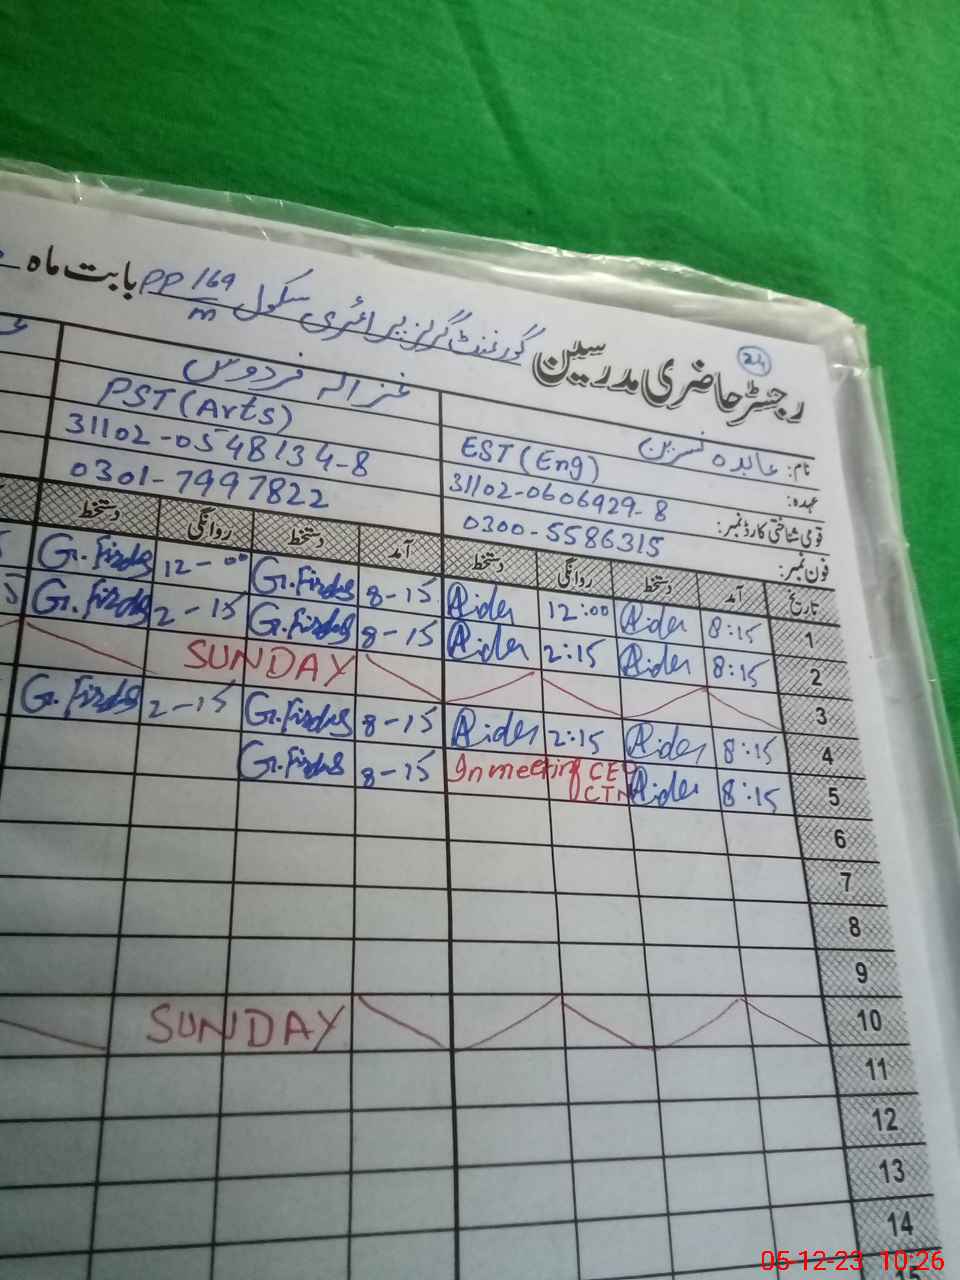 24
رجسٹر حاضری مدرسین گورنمنٹ گرلز پرائمری سکول PP 169/m بابت ماہ
نام: عابدہ نسرین غزالہ فردوس
عہدہ: EST (Eng) PST (Arts)
قومی شناختی کارڈ نمبر: 31102-0606929-8 31102-0548134-8
فون نمبر: 0300-5586315 0301-7997822
تاریخ آمد دستخط روانگی دستخط آمد دستخط روانگی دستخط
1 8:15 12:00 8-15 G.Firdos 12-00 G.Firdos
2 8:15 2:15 8-15 G.Firdos 2-15 G.Firdos
3 SUNDAY
4 8:15 2:15 8-15 G.Firdos 2-15 G.Firdos
5 8:15 In meeting CEO 8-15 G.Firdos
6
7
8
9
10 SUNDAY
11
12
13
14
15
05-12-23 10:26